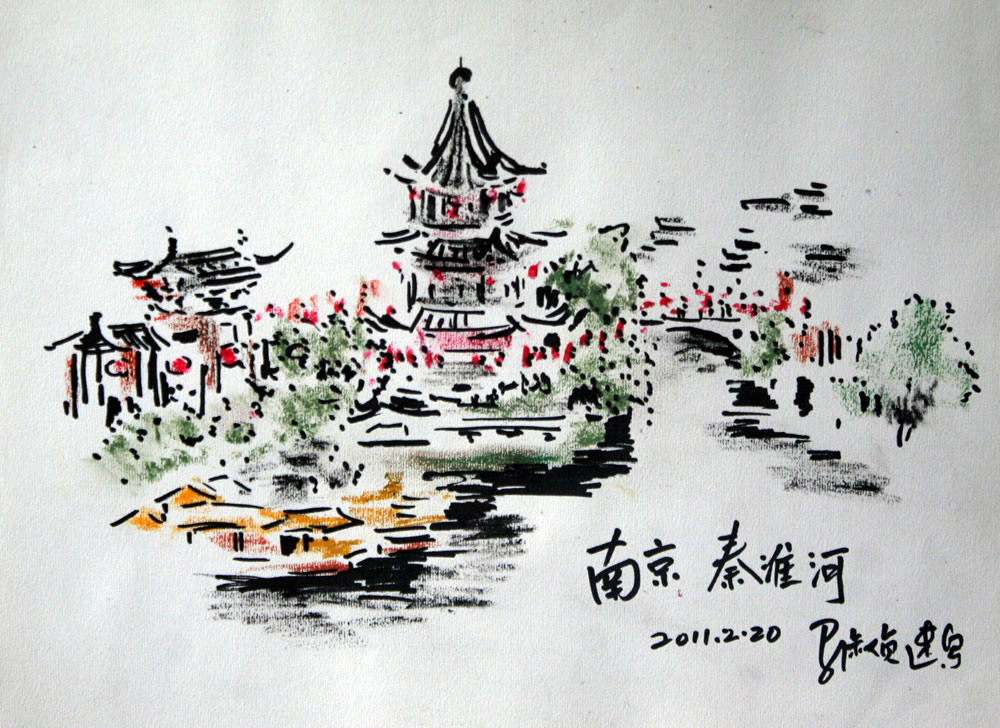 南京 秦淮河
2011.2.20 速写